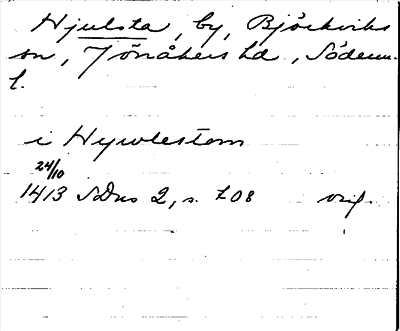 Hjulsta, by, Björkviks
sn, Jönåkers hd, Söderm.
l.
i Hywlestom
24/10
1413 SDns 2, s. 708 orig.